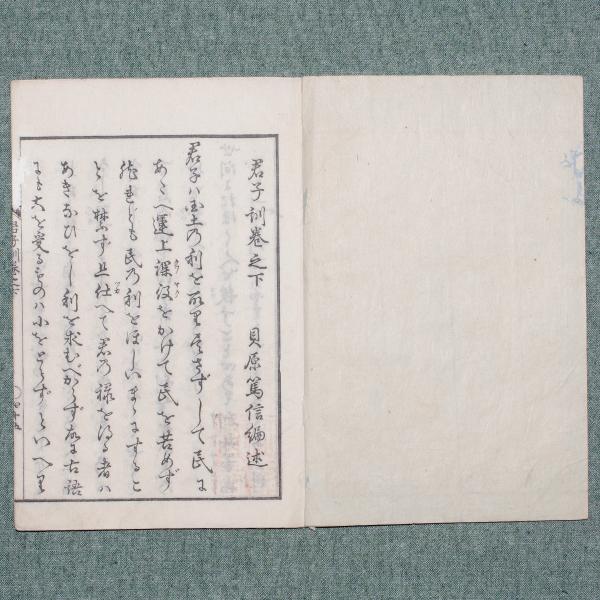 君子訓巻之下　貝原篤信編述
君子ハ国土の利を取り尽さずして民に
あたへ運上課役をかけて民を苦めず
然れども民の利をほしいまゝにするこ
とを禁ず且仕へて君の禄を得る者ハ
あきなひをし利を求むべからず故に古語
にも大を受るものハ小をとらずといへり
君子訓巻之下